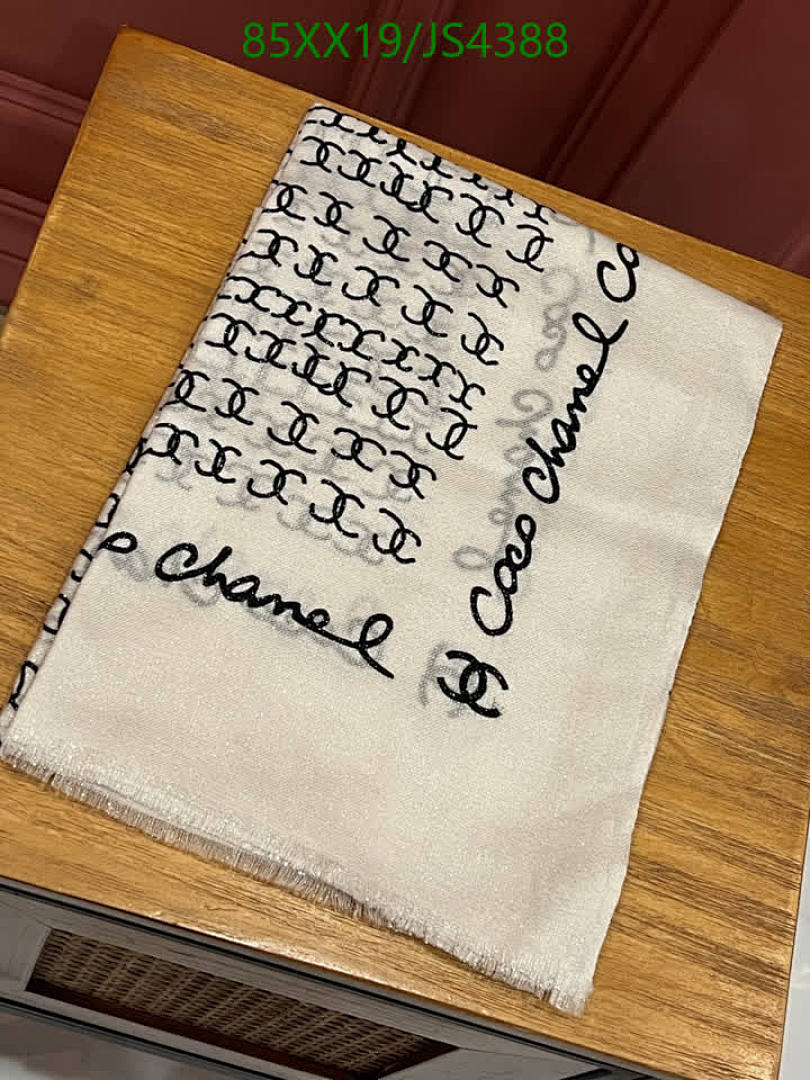 85XX19/JS4388
Coco Chanel Co
o Chanel